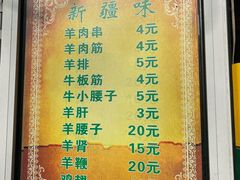 新疆味
羊肉串 4元
羊肉筋 4元
羊排 5元
牛板筋 4元
牛小腰子 5元
羊肝 3元
羊腰子 20元
羊肾 15元
羊鞭 20元
鸡翅